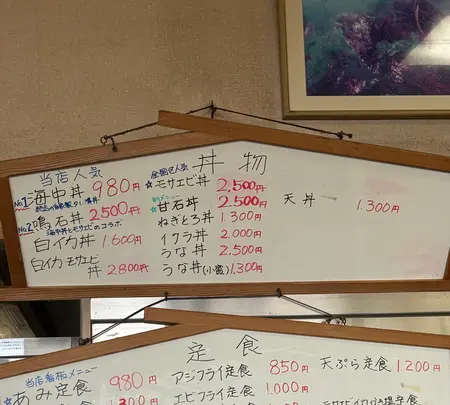 当店人気
No1海中丼 980円
No2鳴石丼 2500円
海中丼とモサエビのコラボ
白イカ丼 1.600円
白イカ・モサエビ丼 2.800円
全国区人気 丼物
☆モサエビ丼 2,500円
☆甘石丼 2,500円
ねぎとろ丼 1.300円
イクラ丼 2,000円
うな丼 2,500円
うな丼(小盛) 1.300円
天丼 1.300円
定食
当店看板メニュー
☆あみ定食 980円
アジフライ定食 850円
エビフライ定食 1.000円
天ぷら定食 1.200円